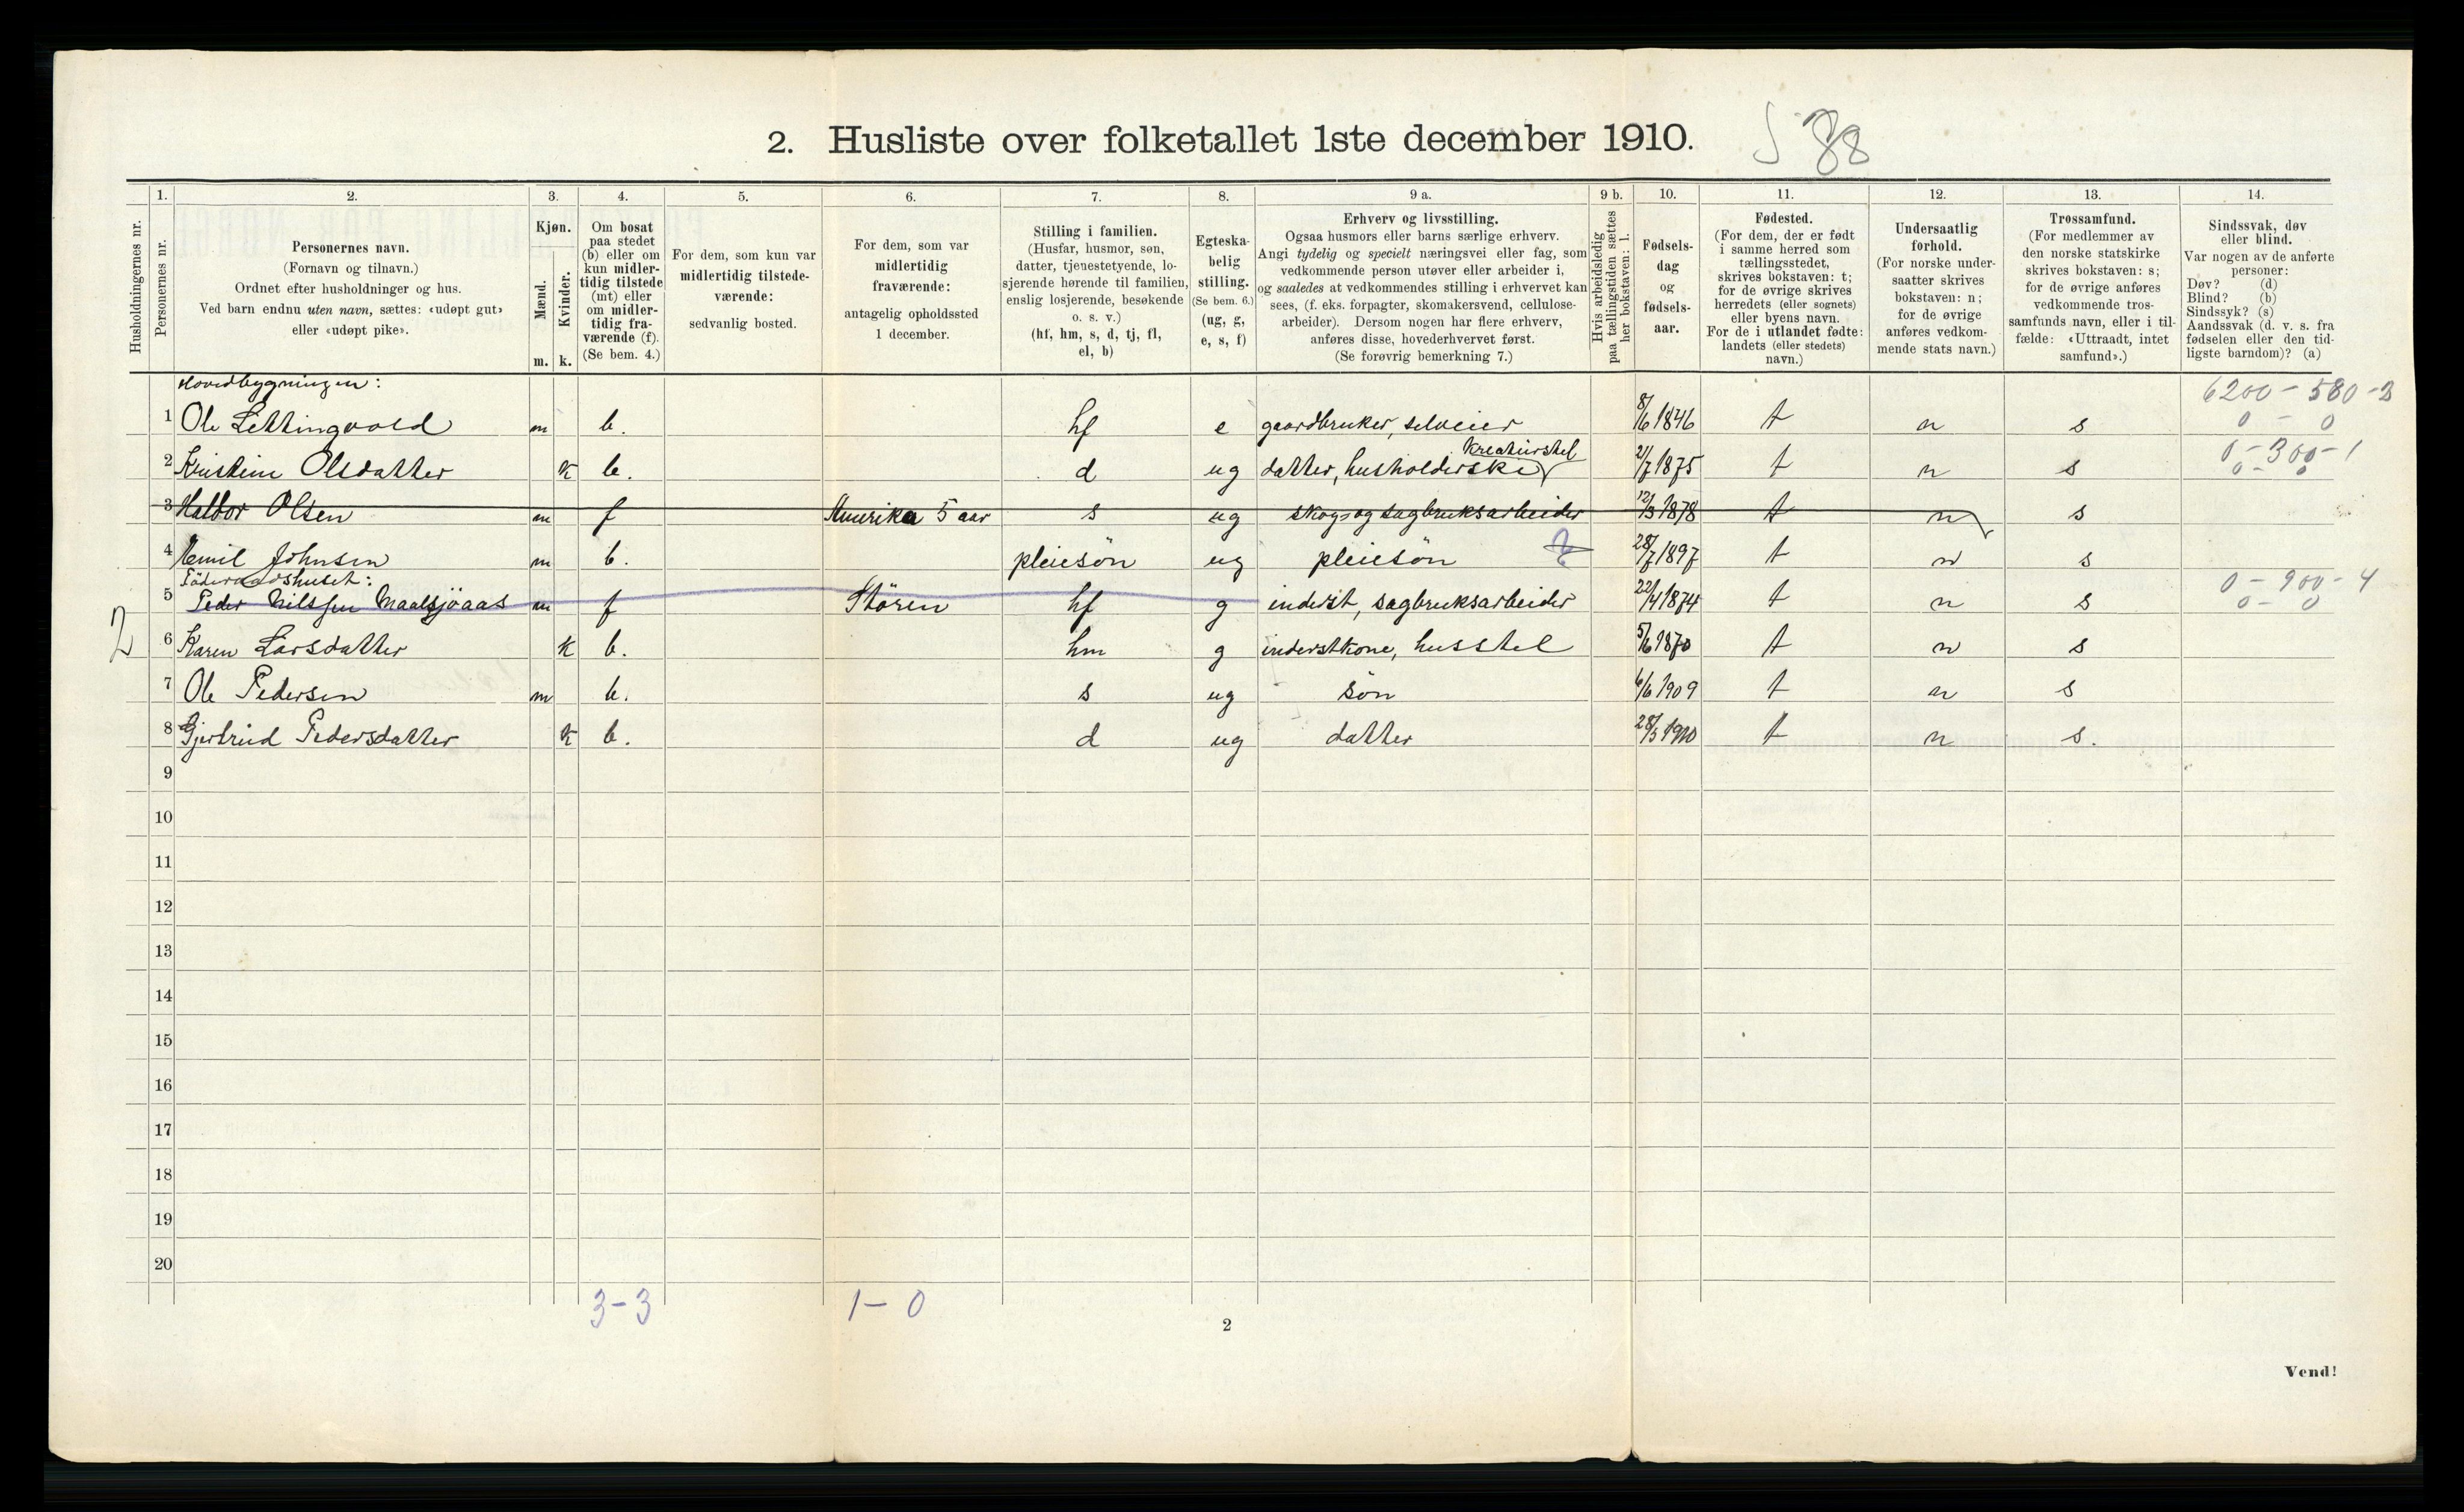 2. Husliste over folketallet 1ste december 1910.
88
1. 2. 3. 4. 5. 6. 7. 8. 9 a. 9 b. 10. 11. 12. 13. 14.
Husholdningernes nr.
Personernes nr.
Personernes navn.
(Fornavn og tilnavn.)
Ordnet efter husholdninger og hus.
Ved barn endnu uten navn, sættes: «udøpt gut»
eller «udøpt pike».
Kjøn.
Mænd.
Kvinder.
m. k.
Om bosat
paa stedet
(b) eller om
kun midler-
tidig tilstede
(mt) eller
om midler-
tidig fra-
værende (f).
(Se bem. 4.)
For dem, som kun var
midlertidig tilstede-
værende:
sedvanlig bosted.
For dem, som var
midlertidig
fraværende:
antagelig opholdssted
1 december.
Stilling i familien.
(Husfar, husmor, søn,
datter, tjenestetyende, lo-
sjerende hørende til familien,
enslig losjerende, besøkende
o. s. v.)
(hf, hm, s, d, tj, fl,
el, b)
Egteska-
belig
stilling.
(Se bem. 6.)
(ug, g,
e, s, f)
Erhverv og livsstilling.
Ogsaa husmors eller barns særlige erhverv.
Angi tydelig og specielt næringsvei eller fag, som
vedkommende person utøver eller arbeider i,
og saaledes at vedkommendes stilling i erhvervet kan
sees, (f. eks. forpagter, skomakersvend, cellulose-
arbeider). Dersom nogen har flere erhverv,
anføres disse, hovederhvervet først.
(Se forøvrig bemerkning 7.)
Hvis arbeidsledig
paa tællingstiden sættes
her bokstaven: l.
Fødsels-
dag
og
fødsels-
aar.
Fødested.
(For dem, der er født
i samme herred som
tællingsstedet,
skrives bokstaven: t;
for de øvrige skrives
herredets (eller sognets)
eller byens navn.
For de i utlandet fødte:
landets (eller stedets)
navn.)
Undersaatlig
forhold.
(For norske under-
saatter skrives
bokstaven: n;
for de øvrige
anføres vedkom-
mende stats navn.)
Trossamfund.
(For medlemmer av
den norske statskirke
skrives bokstaven: s;
for de øvrige anføres
vedkommende tros-
samfunds navn, eller i til-
fælde: «Uttraadt, intet
samfund».)
Sindssvak, døv
eller blind.
Var nogen av de anførte
personer:
Døv? (d)
Blind? (b)
Sindssyk? (s)
Aandssvak (d. v. s. fra
fødselen eller den tid-
ligste barndom)? (a)
Hovedbygningen: 6200 - 580 - 3
1 Ole Lettingvold m b. hf e gaardbruker, selveier 8/6 1846 t n s 0 - 0
Kreaturstel 0 - 300 - 1
2 Kristine Olsdatter k b. d ug datter, husholderske 21/7 1875 t n s 0 - 0
3 Haldor Olsen m f Amerika 5 aar s ug skogs og sagbruksarbeider 12/3 1878 t n s
4 Emil Johnsen m b. pleiesön ug pleiesön 28/7 1897 t n s
Föderaadshuset: 0 - 900 - 4
5 Peder Nilssen Maalsjöaas m f Stören hf g inderst, sagbruksarbeider 22/4 1874 t n s 0 - 0
2 6 Karen Larsdatter k b. hm g inderstkone, husstel 5/6 1870 t n s
7 Ole Pedersen m b. s ug sön 6/6 1909 t n s
8 Gjertrud Pedersdatter k b. d ug datter 28/5 1910 t n s.
9
10
11
12
13
14
15
16
17
18
19
20
3 - 3 1 - 0
2
Vend!